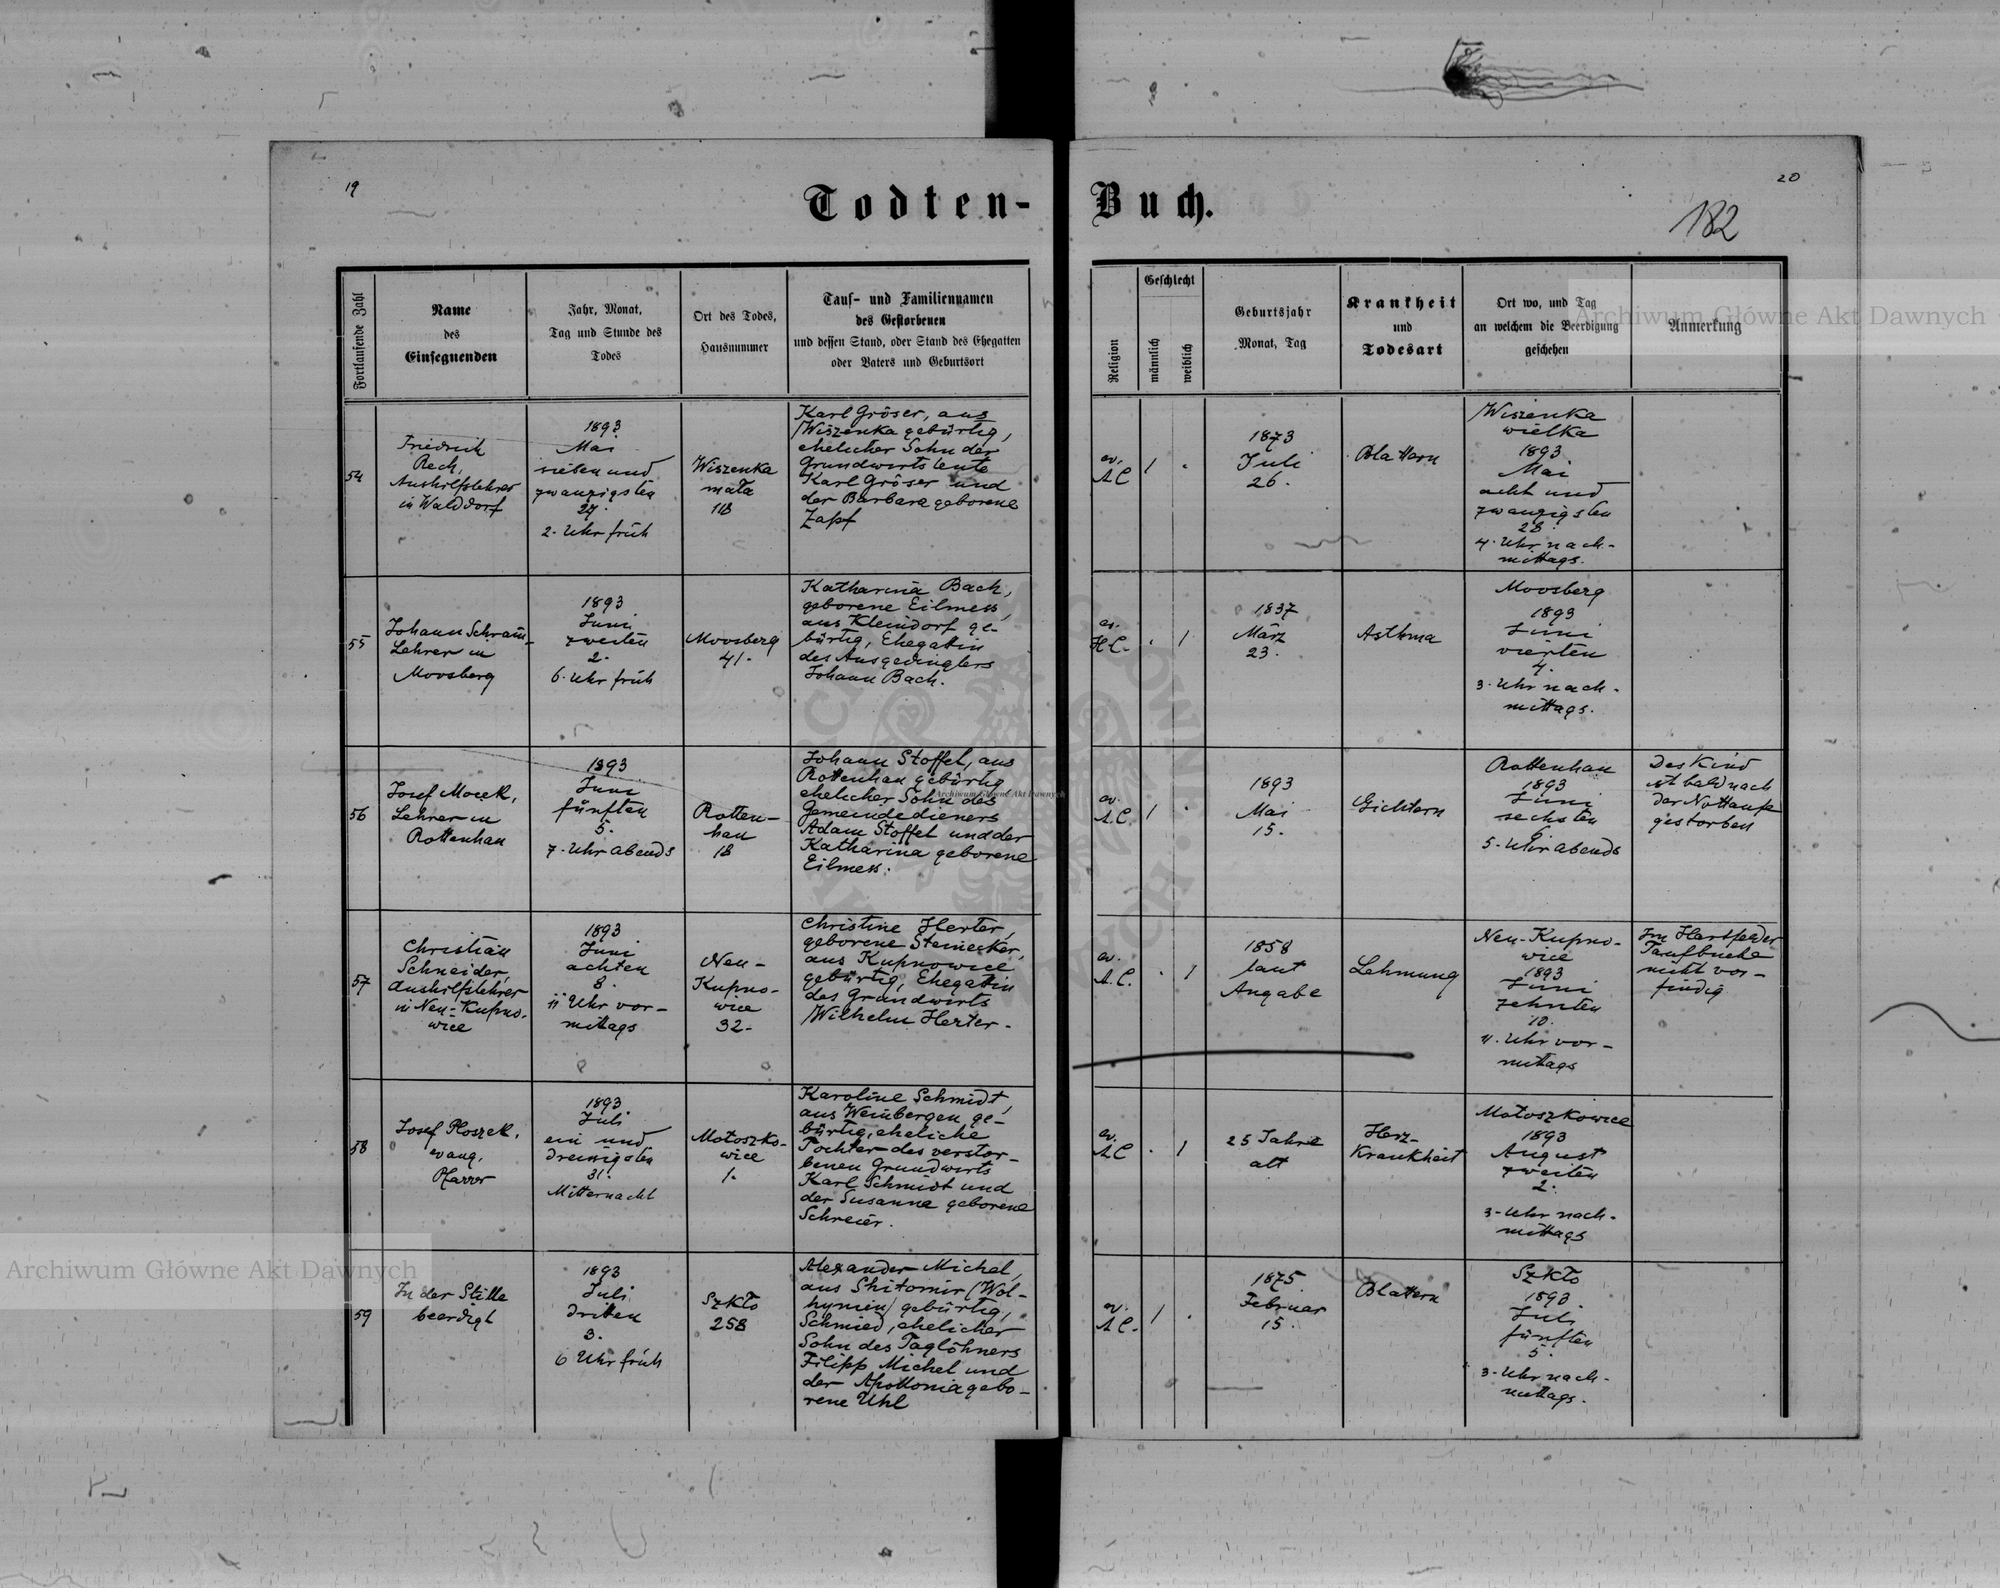 19
20
Todten-Buch.
182
Fortlaufende Zahl
Name
des
Einsegnenden
Jahr, Monat,
Tag und Stunde des
Todes
Ort des Todes,
Hausnummer
Tauf- und Familiennamen
des Gestorbenen
und dessen Stand, oder Stand des Ehegatten
oder Vaters und Geburtsort
Religion
Geschlecht
männlich
weiblich
Geburtsjahr
Monat, Tag
Krankheit
und
Todesart
Ort wo, und Tag
an welchem die Beerdigung
geschehen
Anmerkung
Archiwum Główne Akt Dawnych
54
Friedrich
Rech,
Aushilfslehrer
in Walddorf
1893
Mai
sieben und
zwanzigsten
27.
2. Uhr früh
Wiszenka
mała
118
Karl Gröser, aus
Wiszenka gebürtig,
ehelicher Sohn der
Grundwirtsleute
Karl Gröser und
der Barbara geborene
Zapf
ev.
A.C
1
.
1873
Juli
26.
Blattern
Wiszenka
wielka
1893
Mai
acht und
zwanzigsten
28.
4. Uhr nach-
mittags.
55
Johann Schram-
Lehrer in
Moosberg
1893
Juni
zweiten
2.
6. Uhr früh
Moosberg
41.
Katharina Bach,
geborene Eilmess,
aus Kleindorf ge-
bürtig, Ehegattin
des Ausgedinglers
Johann Bach.
ev.
H.C.
.
1
1837
März
23.
Asthma
Moosberg
1893
Juni
vierten
4.
3. Uhr nach-
mittags.
56
Josef Mocek,
Lehrer in
Rottenhan
1893
Juni
fünften
5.
7. Uhr abends
Rotten-
han
18
Johann Stoffel, aus
Rottenhan gebürtig
ehelicher Sohn des
Gemeindedieners
Adam Stoffel und der
Katharina geborene
Eilmess.
ev.
A.C.
1
.
1893
Mai
15.
Gichtern
Rottenhan
1893
Juni
sechsten
6.
5. Uhr abends
Das Kind
ist bald nach
der Nottaufe
gestorben
Archiwum Główne Akt Dawnych
57
Christian
Schneider,
Aushilfslehrer
in Neu-Kupno-
wice
1893
Juni
achten
8.
11 Uhr vor-
mittags
Neu-
Kupno-
wice
32.
Christine Herter,
geborene Steinecker,
aus Kupnowice
gebürtig, Ehegattin
des Grundwirts
Wilhelm Herter.
ev.
A.C.
.
1
1858
laut
Angabe
Lehmung
Neu-Kupno-
wice
1893
Juni
zehnten
10.
11. Uhr vor-
mittags
Im Hartfelder
Taufbuche
nicht vor-
findig
58
Josef Ploszek,
evang.
Pfarrer
1893
Juli
ein und
dreissigsten
31.
Mitternacht
Motoszko-
wice
1.
Karoline Schmidt,
aus Weinbergen ge-
bürtig, eheliche
Tochter des verstor-
benen Grundwirts
Karl Schmidt und
der Susanne geborene
Schreier.
ev.
A.C
.
1
25 Jahre
alt
Herz-
Krankheit
Motoszkowice
1893
August
zweiten
2.
3. Uhr nach-
mittags
Archiwum Główne Akt Dawnych
59
In der Stille
beerdigt
1893
Juli
dritten
3.
6 Uhr früh
Szkło
258
Alexander Michel,
aus Shitomir (Wol-
hynien) gebürtig,
Schmied, ehelicher
Sohn des Taglöhners
Filipp Michel und
der Apollonia gebo-
rene Uhl
ev.
A.C.
1
.
1875
Februar
15.
Blattern
Szkło
1893
Juli
fünften
5.
3. Uhr nach-
mittags.